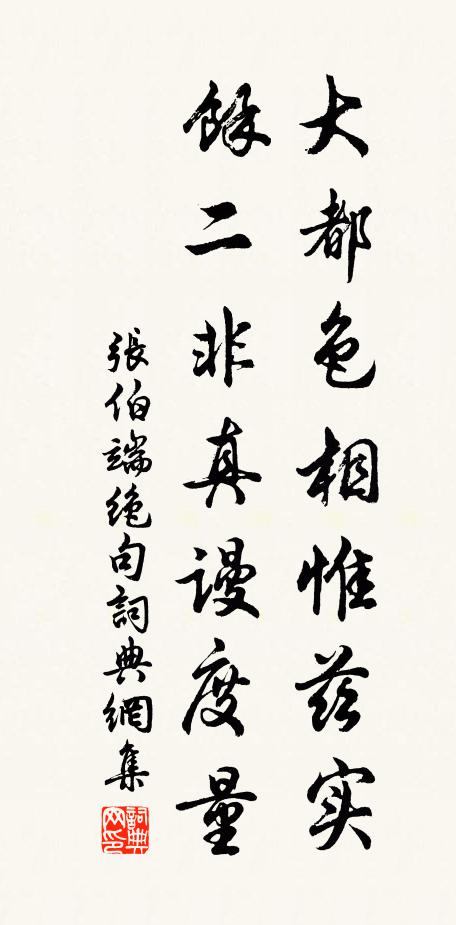 大都色相惟茲实
餘二非真谩度量
張伯端绝句詞典網集
詞典网印